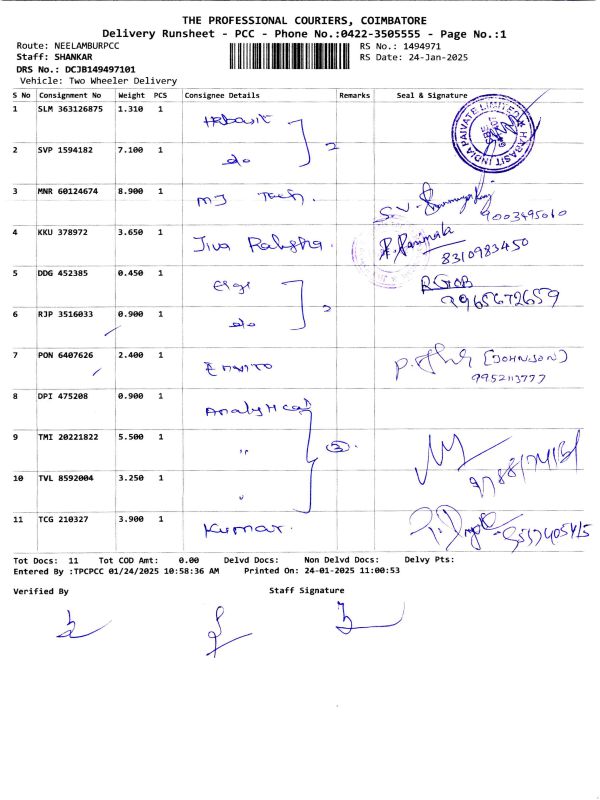 THE PROFESSIONAL COURIERS, COIMBATORE
Delivery Runsheet - PCC - Phone No.:0422-3505555 - Page No.:1
Route: NEELAMBURPCC
RS No.: 1494971
Staff: SHANKAR
RS Date: 24-Jan-2025
DRS No.: DCJB149497101
Vehicle: Two Wheeler Delivery
S No Consignment No Weight PCS Consignee Details Remarks Seal & Signature
1 SLM 363126875 1.310 1
2 SVP 1594182 7.100 1 do 2
HABASIT INDIA PRIVATE LIMITED
3 MNR 60124674 8.900 1 MJ Tech. S.V.
9003495060
4 KKU 378972 3.650 1 Jiva
8310983450
5 DDG 452385 0.450 1
6 RJP 3516033 0.900 1 do 2
7 PON 6407626 2.400 1 (JOHNSON)
9952113777
8 DPI 475208 0.900 1 Analytical
9 TMI 20221822 5.500 1 " 3
10 TVL 8592004 3.250 1 "
11 TCG 210327 3.900 1 Kumar.
Tot Docs: 11 Tot COD Amt: 0.00 Delvd Docs: Non Delvd Docs: Delvy Pts:
Entered By :TPCPCC 01/24/2025 10:58:36 AM Printed On: 24-01-2025 11:00:53
Verified By Staff Signature